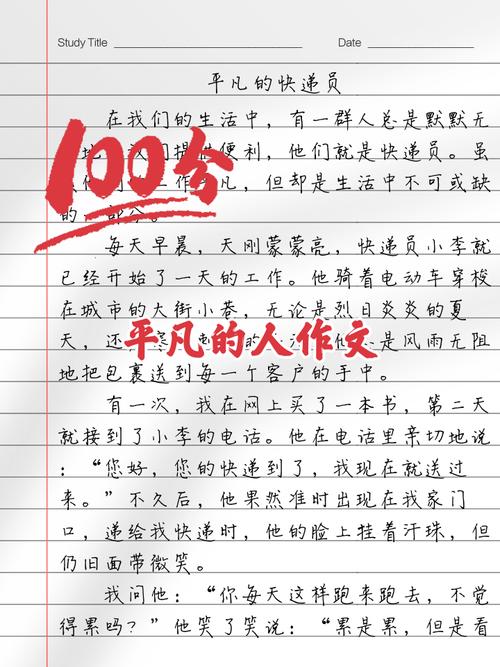 Study Title
Date
平凡的快递员
在我们的生活中，有一群人总是默默无
地 提 便利，他们就是快递员。虽
工作 凡，但却是生活中不可或缺
的一部分。
100分
每天早晨，天刚蒙蒙亮，快递员小李就
已经开始了一天的工作。他骑着电动车穿梭
在城市的大街小巷，无论是烈日炎炎的夏
天，还 的 是风雨无阻
平凡的人作文
地把包裹送到每一个客户的手中。
有一次，我在网上买了一本书，第二天
就接到了小李的电话。他在电话里亲切地说
：“您好，您的快递到了，我现在就送过
来。”不久后，他果然准时出现在我家门
口，递给我快递时，他的脸上挂着汗珠，但
仍旧面带微笑。
我问他：“你每天这样跑来跑去，不觉
得累吗？”他笑了笑说：“累是累，但是看